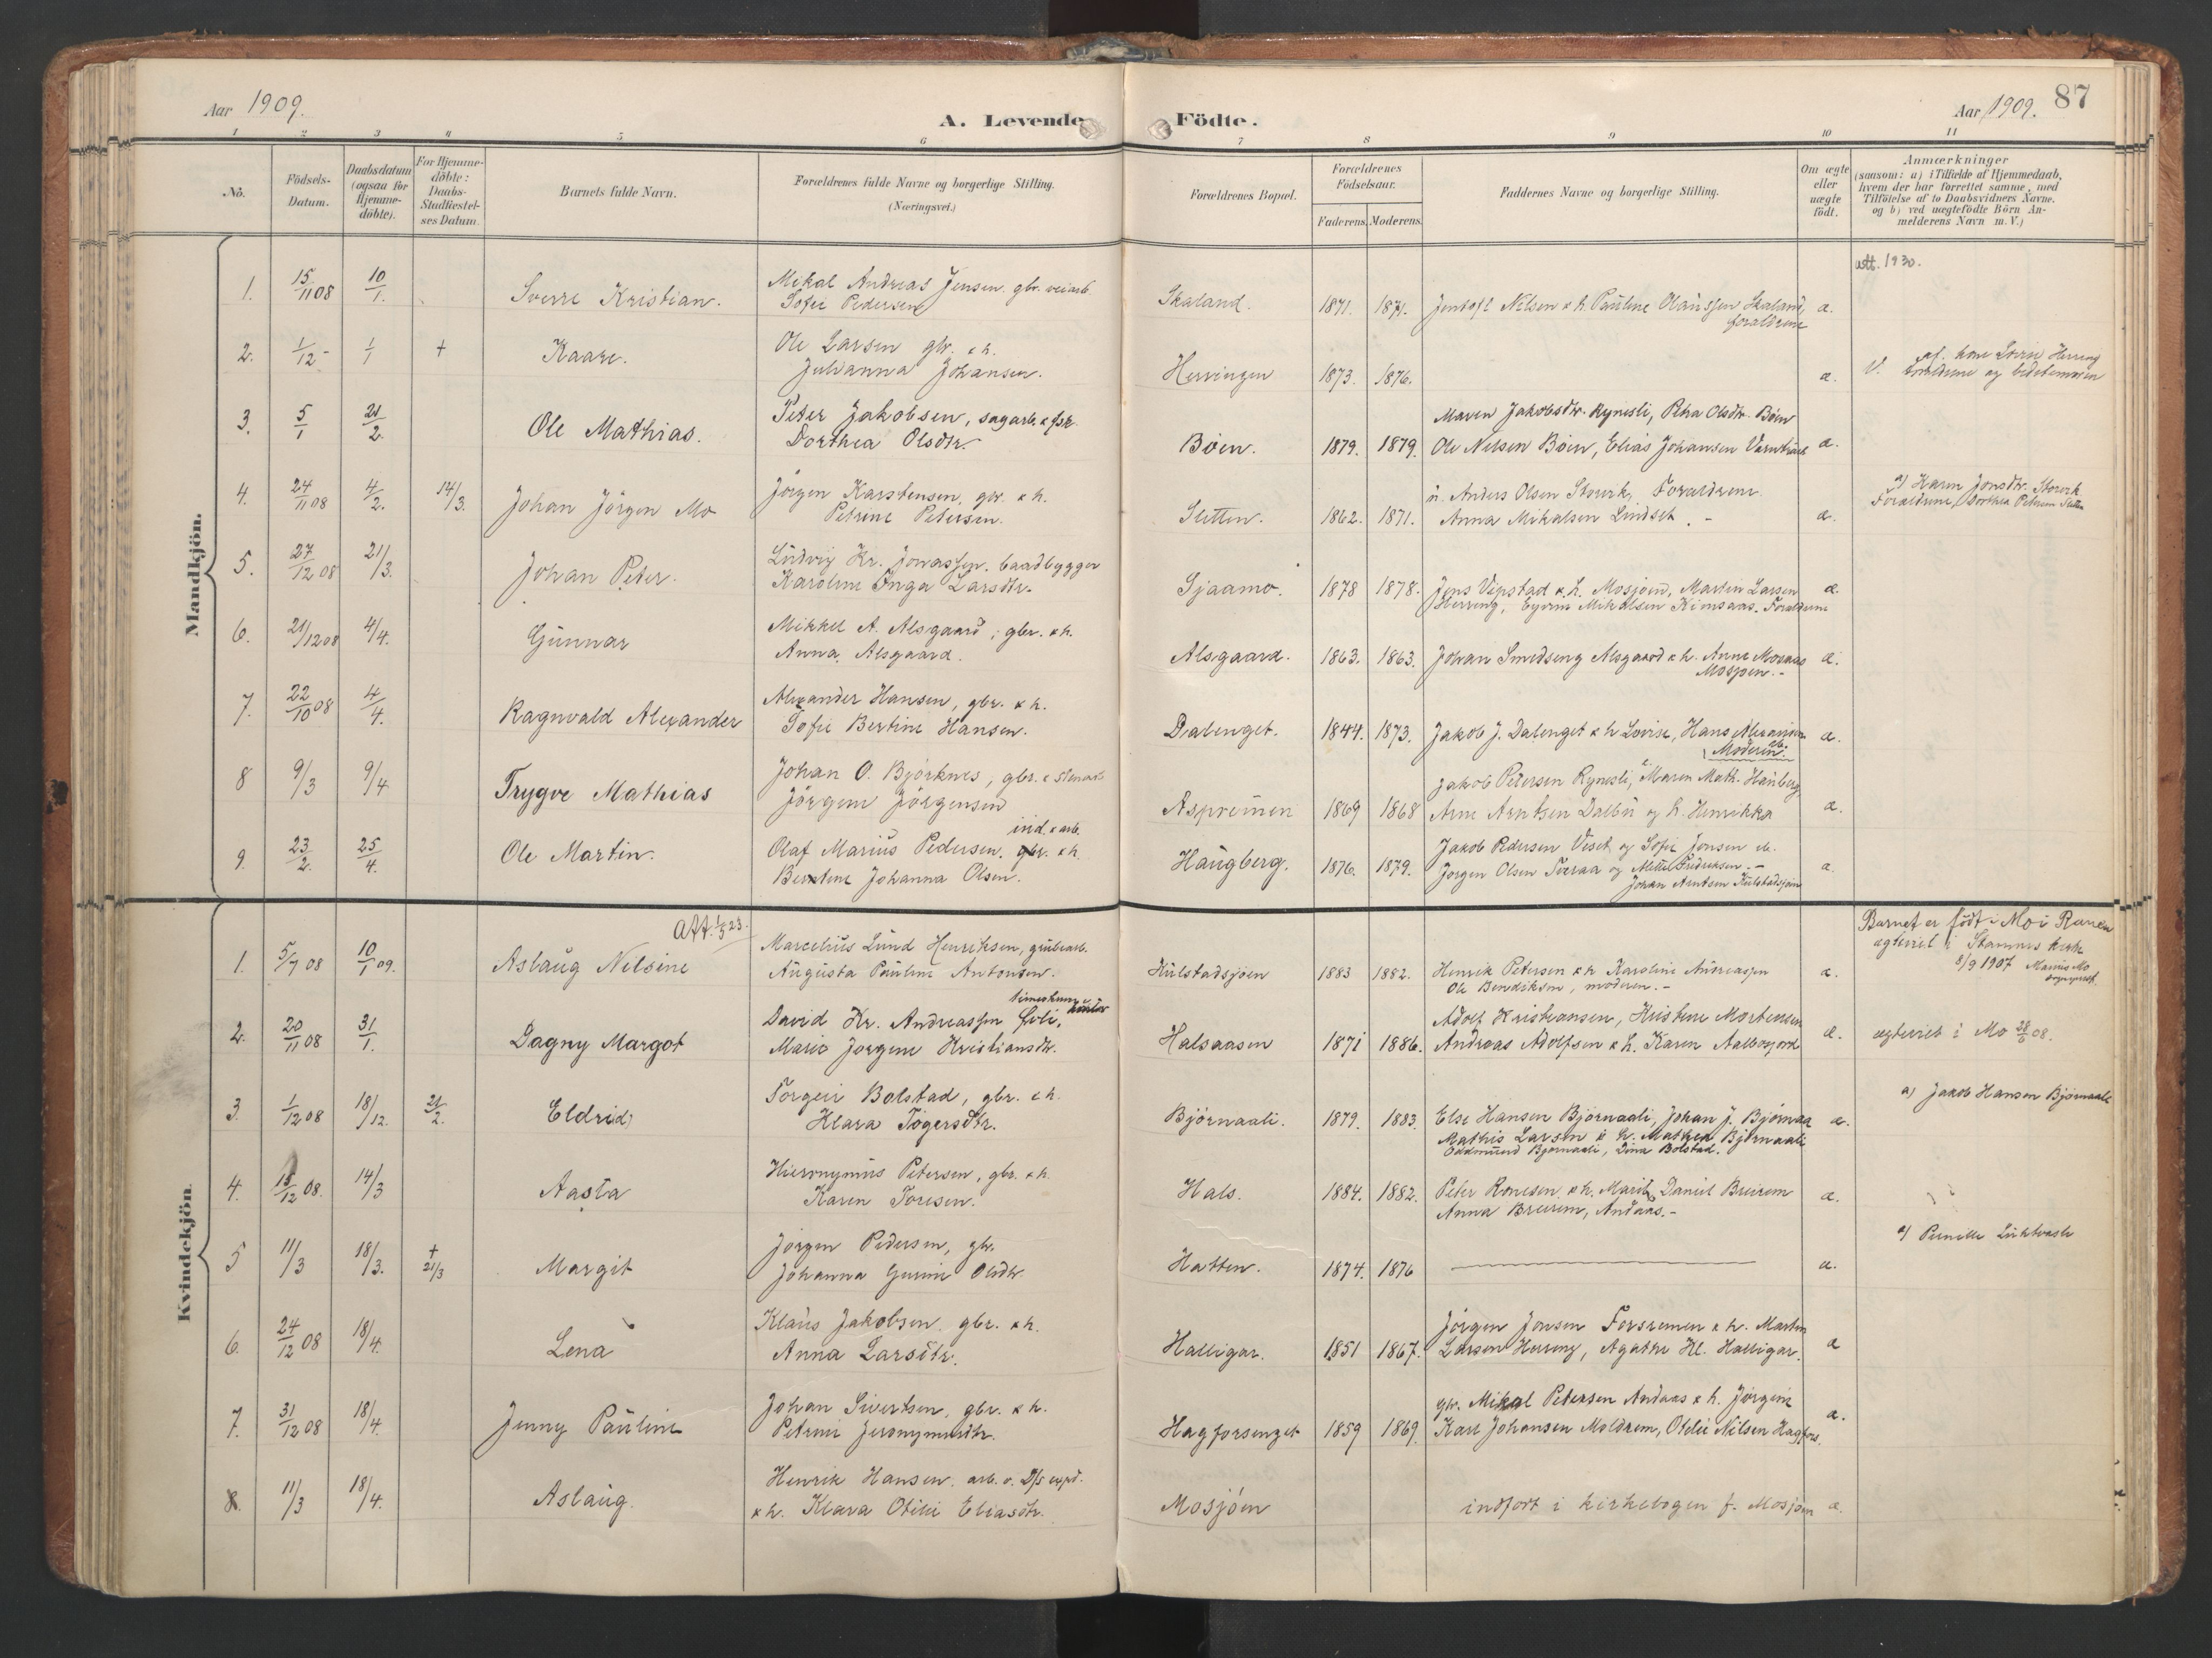 Aar 1909.
A. Levende
Födte.
Aar 1909. 87
1 2 3 4 5 6 7 8 9 10 11
No.
Födsels-Datum.
Daabsdatum (ogsaa for Hjemmedöbte).
For Hjemmedöbte: Daabs-Stadfæstelses Datum.
Barnets fulde Navn.
Forældrenes fulde Navne og borgerlige Stilling.
(Næringsvei.)
Forældrenes Bopæl.
Forældrenes Födselsaar.
Faderens. Moderens.
Faddernes Navne og borgerlige Stilling.
Om ægte eller uægte födt.
Anmærkninger
(saasom: a) i Tilfælde af Hjemmedaab, hvem der har forrettet samme, med Tilföielse af to Daabsvidners Navne. og b) ved uægtefödte Börn Anmelderens Navn m. V.)
Mandkjön.
att. 1930.
1. 15/11 08 10/1. Sverre Kristian. Mikal Andreas Jensen. gbr. veiarb.
Sofie Pedersen
Skaland. 1871. 1871. Jentoft Nilsen & h. Pauline Olaussen Skaland, forældrene æ.
2. 1/12 - 1/1 + Kaare. Ole Larsen gbr. & h.
Julianna Johansen.
Herringen 1873. 1876. æ.
3. 5/1 21/2 Ole Mathias. Peter Jakobsen, sagarb. & fsk.
Dorthea Olsdtr.
Böen. 1879. 1879. Maren Jakobsdtr. Rynesli, Petra Olsdtr. Böen
Ole Nelsen Böen, Elias Johansen æ.
4. 24/11 08 4/2. 14/3. Johan Jörgen Mo Jörgen Karstensen, gbr. & h.
Petrine Petersen.
Sletten. 1862. 1871. Anders Olsen Storvik, Forældrene
Anna Mikalsen Lindset. - æ.
a) Karen Jonsdtr. Storvik
Forældrene, Dorthea Petersen Sletten
5. 27/12 08 21/3. Johan Peter. Ludvig Kr. Jonassen. baadbygger
Karoline Inga Larsdtr.
Sjaamo. 1878 1878. Jens Vepstad & h. Mosjöen, Martin Larsen
Herring, Mikalsen Kimsaas. Forældrene æ.
6. 21/12 08 4/4. Gunnar Mikkel A. Alsgaard, gbr. & h.
Anna Alsgaard.
Alsgaard. 1863. 1863. Johan Smedseng Alsgaard & h. Anne Mosaas
Mosjöen. - æ.
7. 22/10 08 4/4. Ragnvald Alexander Alexander Hansen, gbr. & h.
Sofie Bertine Hansen.
Dalenget. 1844. 1873. Jakob J. Dalenget & h Lovise, Hans Alexandersen
Moderen. æ.
8 9/3 9/4 Trygve Mathias Johan O. Björknes, gbr. & stenarb.
Jörgine Jörgensen
Aspreinen 1869 1868 Jakob Petersen Rynesli, Maren Math. Haugberg,
Arne Arntsen Dalbu og h. Henrikka æ.
9. 23/2. 25/4. Ole Martin. ind. & arb.
Olaf Marius Pedersen. gbr. & h.
Berntine Johanna Olsen.
Haugberg. 1876. 1879. Jakob Pedersen Veset og Sofie Jonsen
Jorgen Olsen Forraa og Mette Fredriksen. -
Johan Arntsen Kulstadsjöen æ.
Kvindekjön.
att. 1/5 23.
1. 5/7 08 10/1 09. Aslaug Nelsine Marcelius Lund Henriksen, grubearb.
Augusta Pauline Antonsen.
Kulstadsjöen 1883 1882. Henrik Petersen & h Karoline Andreassen
Ole Bendiksen, moderen. - æ.
Barnet er födt i Mo i Ranen
ægteviet i Stamnes kirke
8/9 1907
2. 20/11 08 31/1. Dagny Margot David Kr. Andreassen
Marie Jorgine Kristiansdtr.
Halsaasen 1871 1886. Adolf Kristiansen, Kristine Mortensen
Andreas Adolfsen & h. Karen Aalbosjord æ.
ægteviet i Mo 28/6 08.
3 1/12 08 18/12. 21/2. Eldrid Torgeir Bolstad, gbr. & h.
Klara Togersdtr.
Björnaali. 1879. 1883. Else Hansen Björnaali, Johan J. Björnaa
Mathis Larsen & h. Mathea Björnaali
Eddmund Bjornaali, Dina Bolstad. æ.
a) Jakob Hansen Björnaali
4. 15/12 08. 14/3 Aasta Hieronymus Petersen, gbr. & h
Karen Toresen.
Hals. 1884. 1882. Peter Ronesen & h. Marit, Daniel Breirem
Anna Breirem, Andaas. - æ.
5 11/3 18/3. + 21/3 Margit Jörgen Pedersen, gbr.
Johanna Gurine Olsdtr.
Hatten. 1874. 1876 æ.
a) Pernille
6. 24/12 08 18/4. Lena Klaus Jakobsen. gbr. & h.
Anna Larsdtr.
Halligar. 1851 1867. Jörgen Jonsen Forsremen & h. Marten
Larsen Herring, Agathe Kl. Halligar. æ
7. 31/12 08 18/4. Jenny Pauline Johan Sivertsen, gbr. & h.
Petrine Jeronymusdtr.
Hagforsenget 1859 1869. gbr. Mikal Petersen Andaas & h. Jörgine
Karl Johansen Moldrem, Otelie Nilsen Hagfors. æ.
8. 11/3 18/4. Aslaug. Henrik Hansen. arb. v. D/s exped.
& h. Klara Otilie Eliasdtr.
Mosjöen indfört i kirkebogen f. Mosjöen æ.